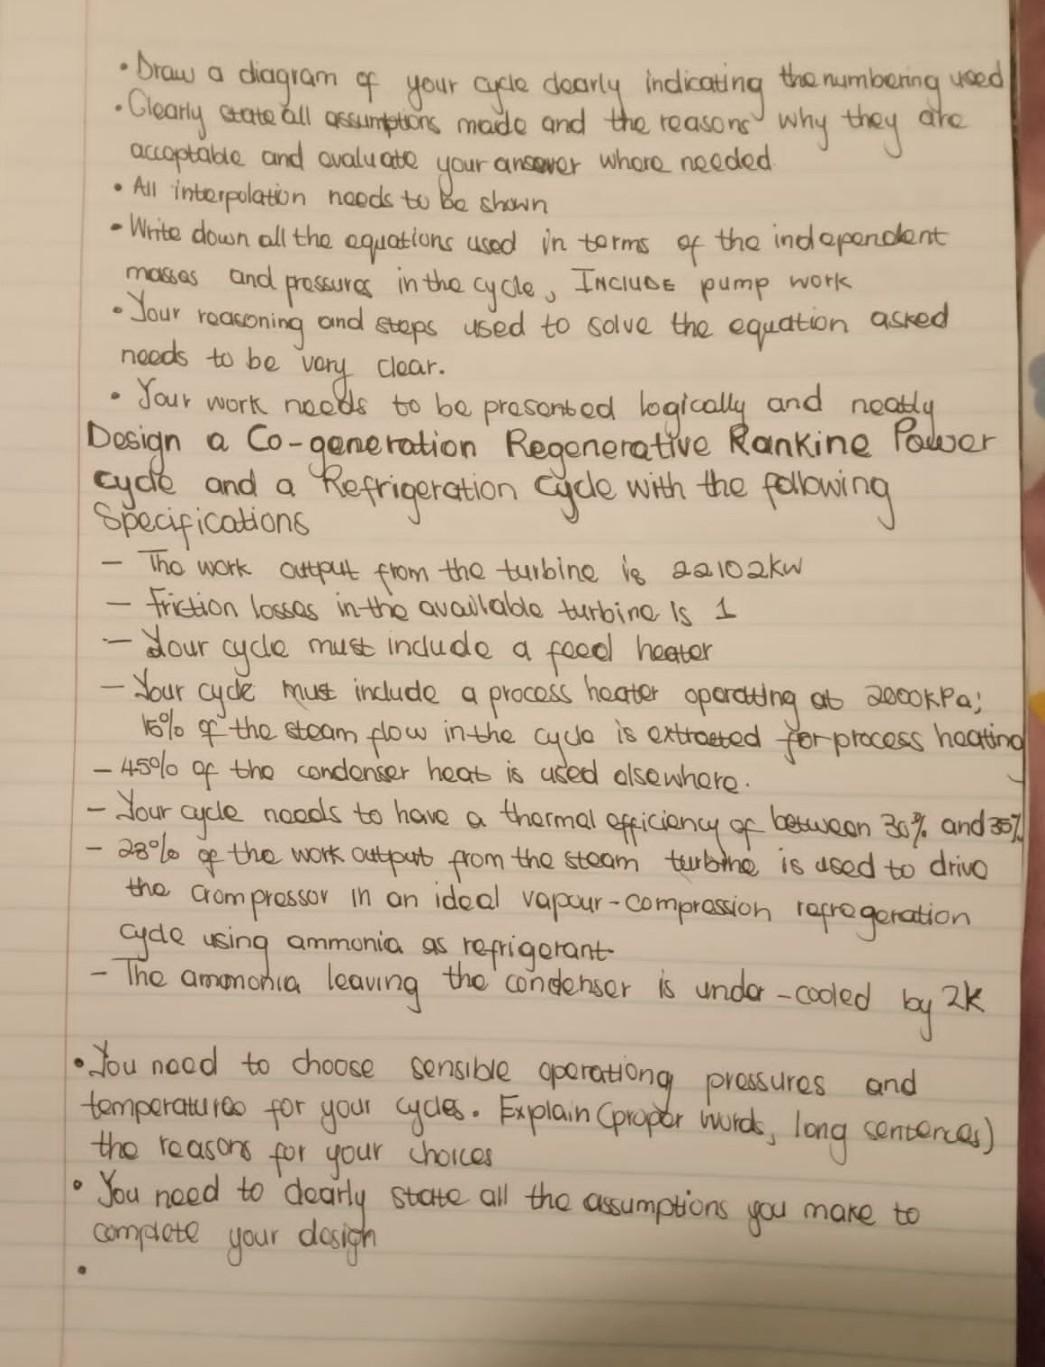 • Draw a diagram of your cycle clearly indicating the numbering used
• Clearly state all assumptions made and the reasons why they are
acceptable and evaluate your answer where needed
• All interpolation needs to be shown
• Write down all the equations used in terms of the independent
masses and pressures in the cycle, INCLUDE pump work
• Your reasoning and steps used to solve the equation asked
needs to be very clear.
• Your work needs to be presented logically and neatly
Design a Co-generation Regenerative Rankine Power
cycle and a Refrigeration Cycle with the following
Specifications
– The work output from the turbine is 22102kW
– Friction losses in the available turbine is 1
– Your cycle must include a feed heater
– Your cycle must include a process heater operating at 2000KPa;
15% of the steam flow in the cycle is extracted for process heating
– 45% of the condenser heat is used elsewhere.
– Your cycle needs to have a thermal efficiency of between 30% and 35%
– 28% of the work output from the steam turbine is used to drive
the Crompressor in an ideal vapour-compression refregeration
cycle using ammonia as refrigerant
– The ammonia leaving the condenser is under-cooled by 2K
• You need to choose sensible operationg pressures and
temperatures for your cycles. Explain (proper words, long sentences)
the reasons for your choices
• You need to clearly state all the assumptions you make to
complete your design
•